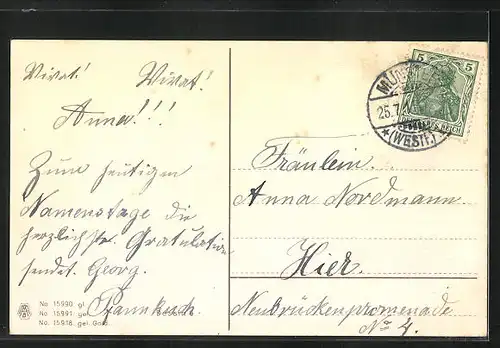 Vivat! Vivat!
Anna!!!
Zum heutigen
Namenstage die
herzlichste Gratulation
sendet Georg
Pfannkuch
No 15990 gl.
No. 15991 gel.
No. 15918 gel. Gold
5 5
(WESTF.)
25.7
REICH
Fräulein
Anna Nordmann
Hier.
Neubrückenpromenade
No 4.